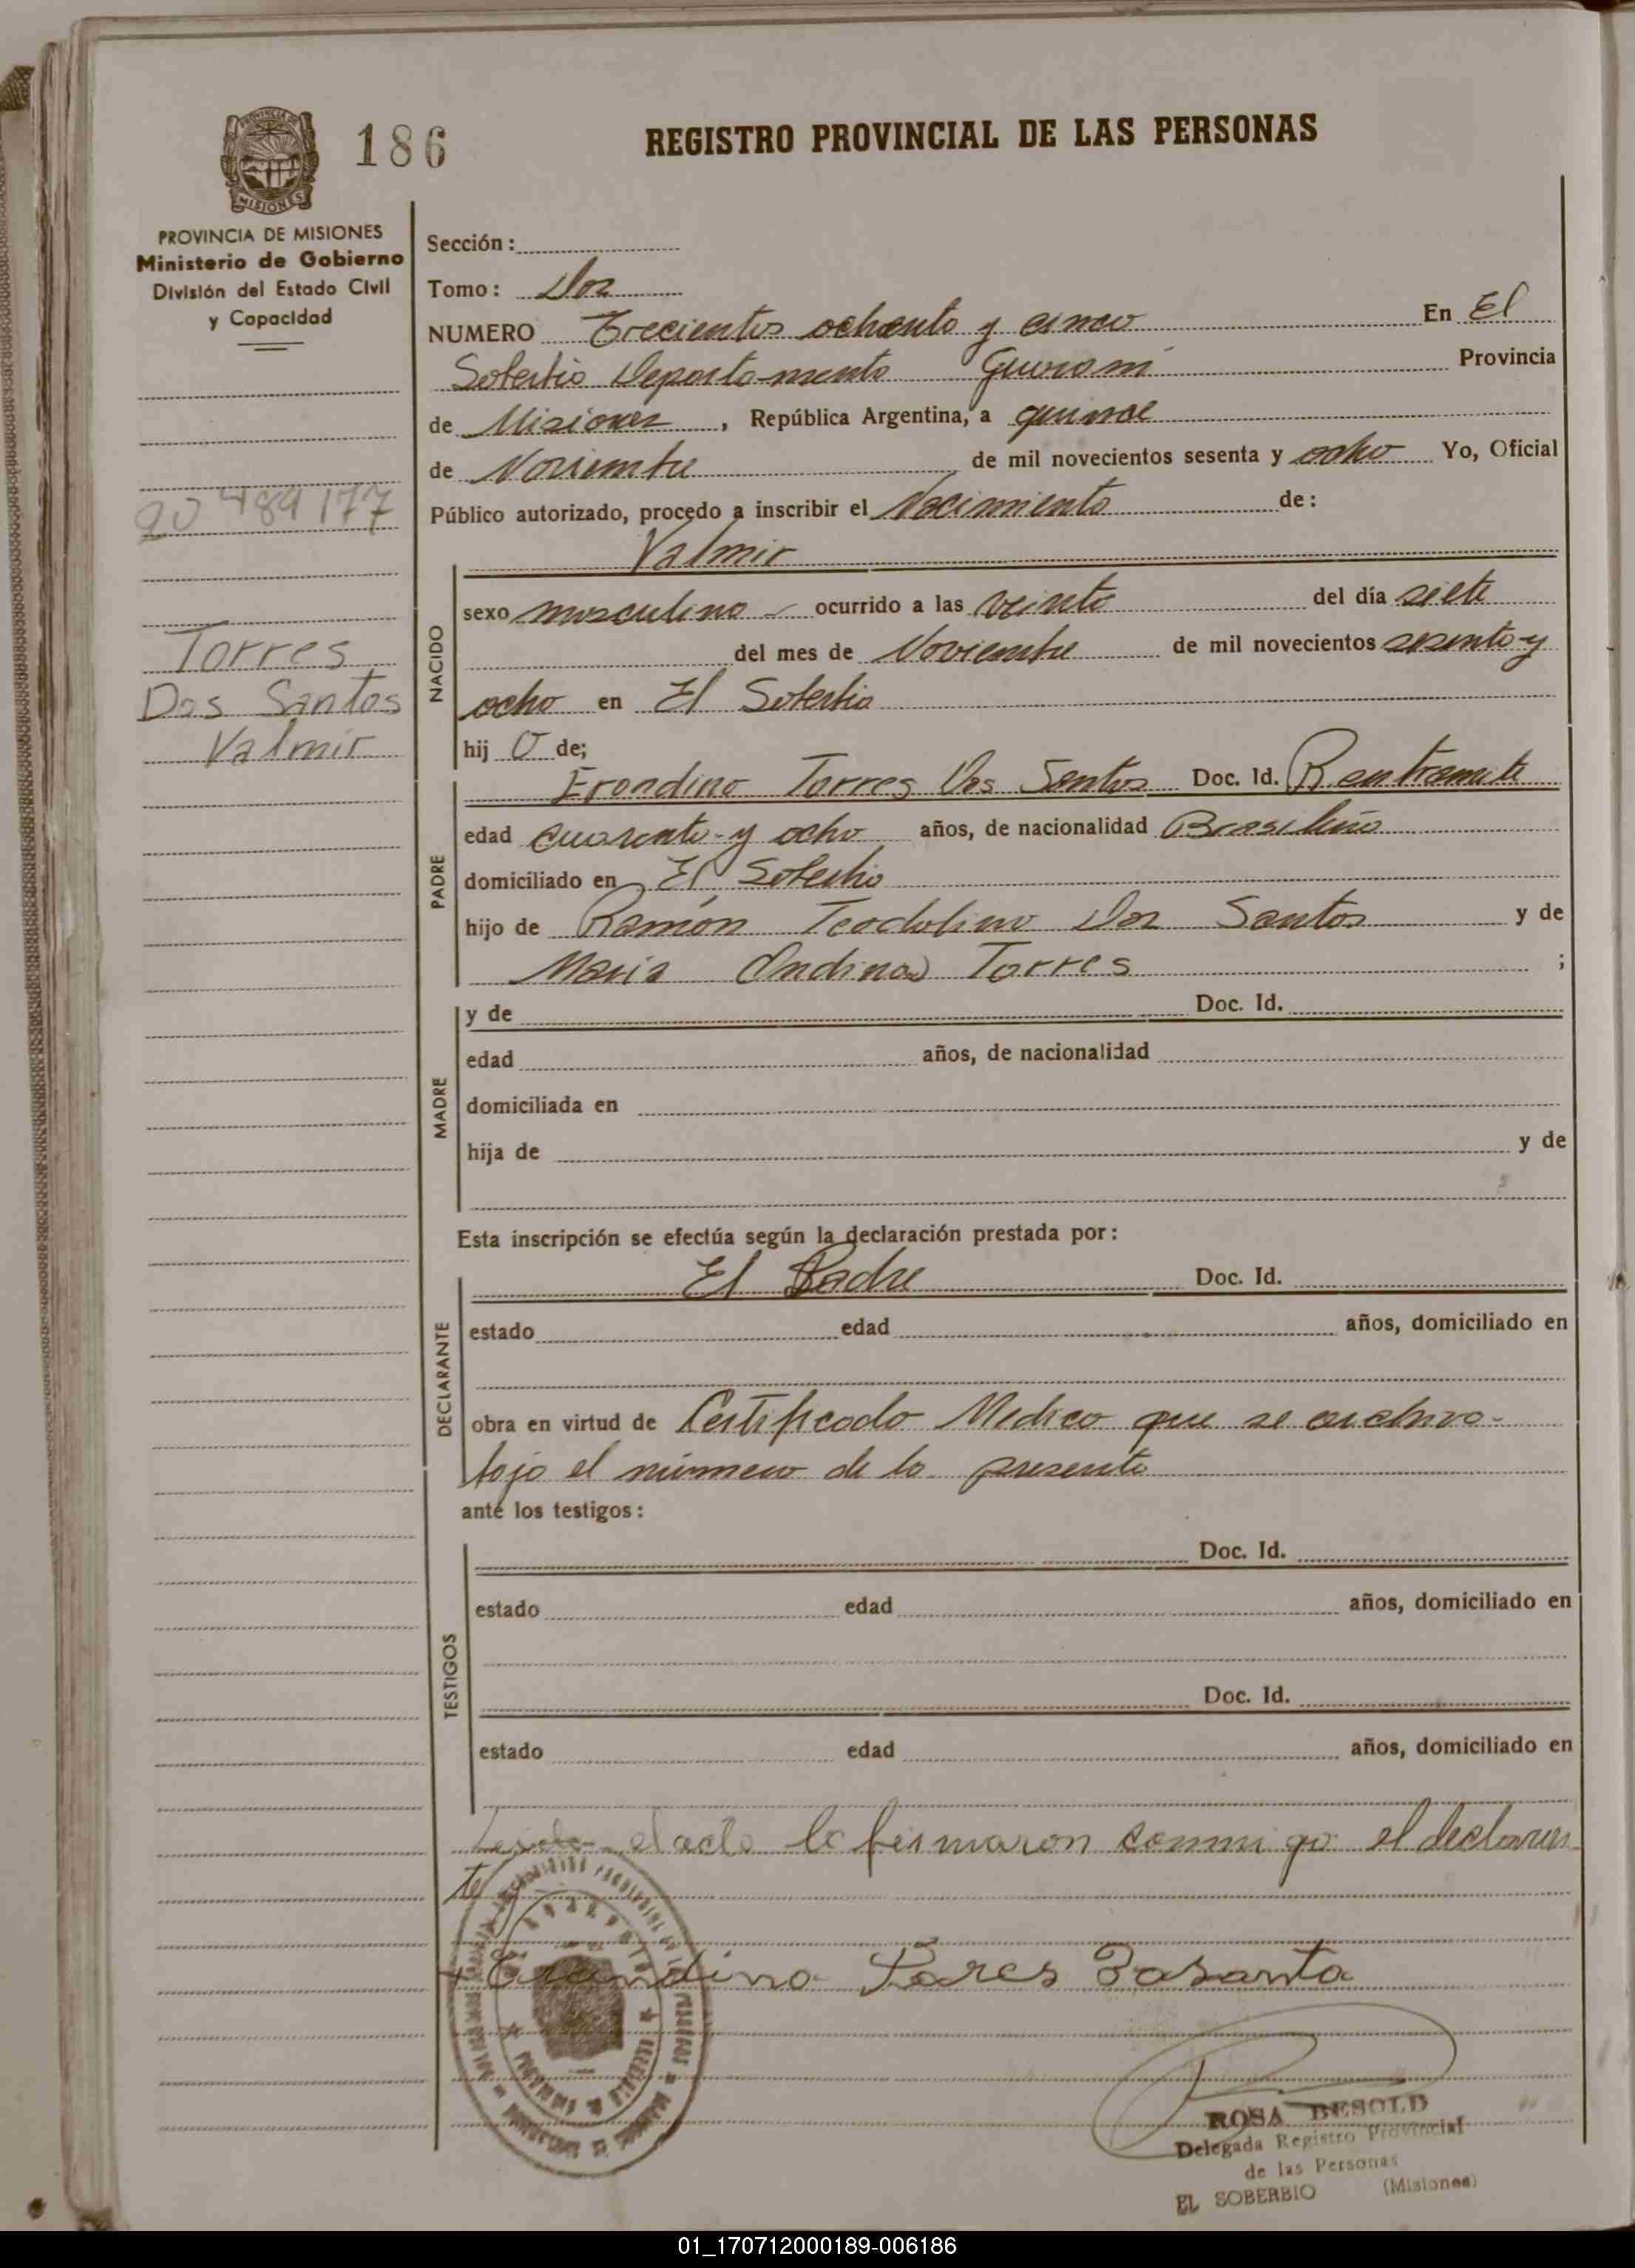 186
REGISTRO PROVINCIAL DE LAS PERSONAS
PROVINCIA DE MISIONES
MISIONES
PROVINCIA DE MISIONES
Ministerio de Gobierno
División del Estado Civil
y Capacidad
20489177
Torres
Dos Santos
Valmir
Sección:
Tomo: Dos
NUMERO Trecientos ochenta y cinco En El
Soberbio Departamento Guarani Provincia
de Misiones, República Argentina, a quince
de Noviembre de mil novecientos sesenta y ocho Yo, Oficial
Público autorizado, procedo a inscribir el Nacimiento de:
Valmir
NACIDO
sexo masculino ocurrido a las veinte del día siete
del mes de Noviembre de mil novecientos sesenta y
ocho en El Soberbio
hij o de;
PADRE
Torres Dos Santos Doc. Id.
edad cuarenta y ocho años, de nacionalidad Brasileño
domiciliado en El Soberbio
hijo de Ramón Teodolino Dos Santos y de
Maria Torres ;
MADRE
y de Doc. Id.
edad años, de nacionalidad
domiciliada en
hija de y de
Esta inscripción se efectúa según la declaración prestada por:
DECLARANTE
El Padre Doc. Id.
estado edad años, domiciliado en
obra en virtud de Certificado Medico que se archiva
bajo el número de la presente
ante los testigos:
TESTIGOS
Doc. Id.
estado edad años, domiciliado en
Doc. Id.
estado edad años, domiciliado en
el acta la firmaron conmigo el declaran
te
ROSA BESOLD
Delegada Registro Provincial
de las Personas
EL SOBERBIO (Misiones)
01_170712000189-006186